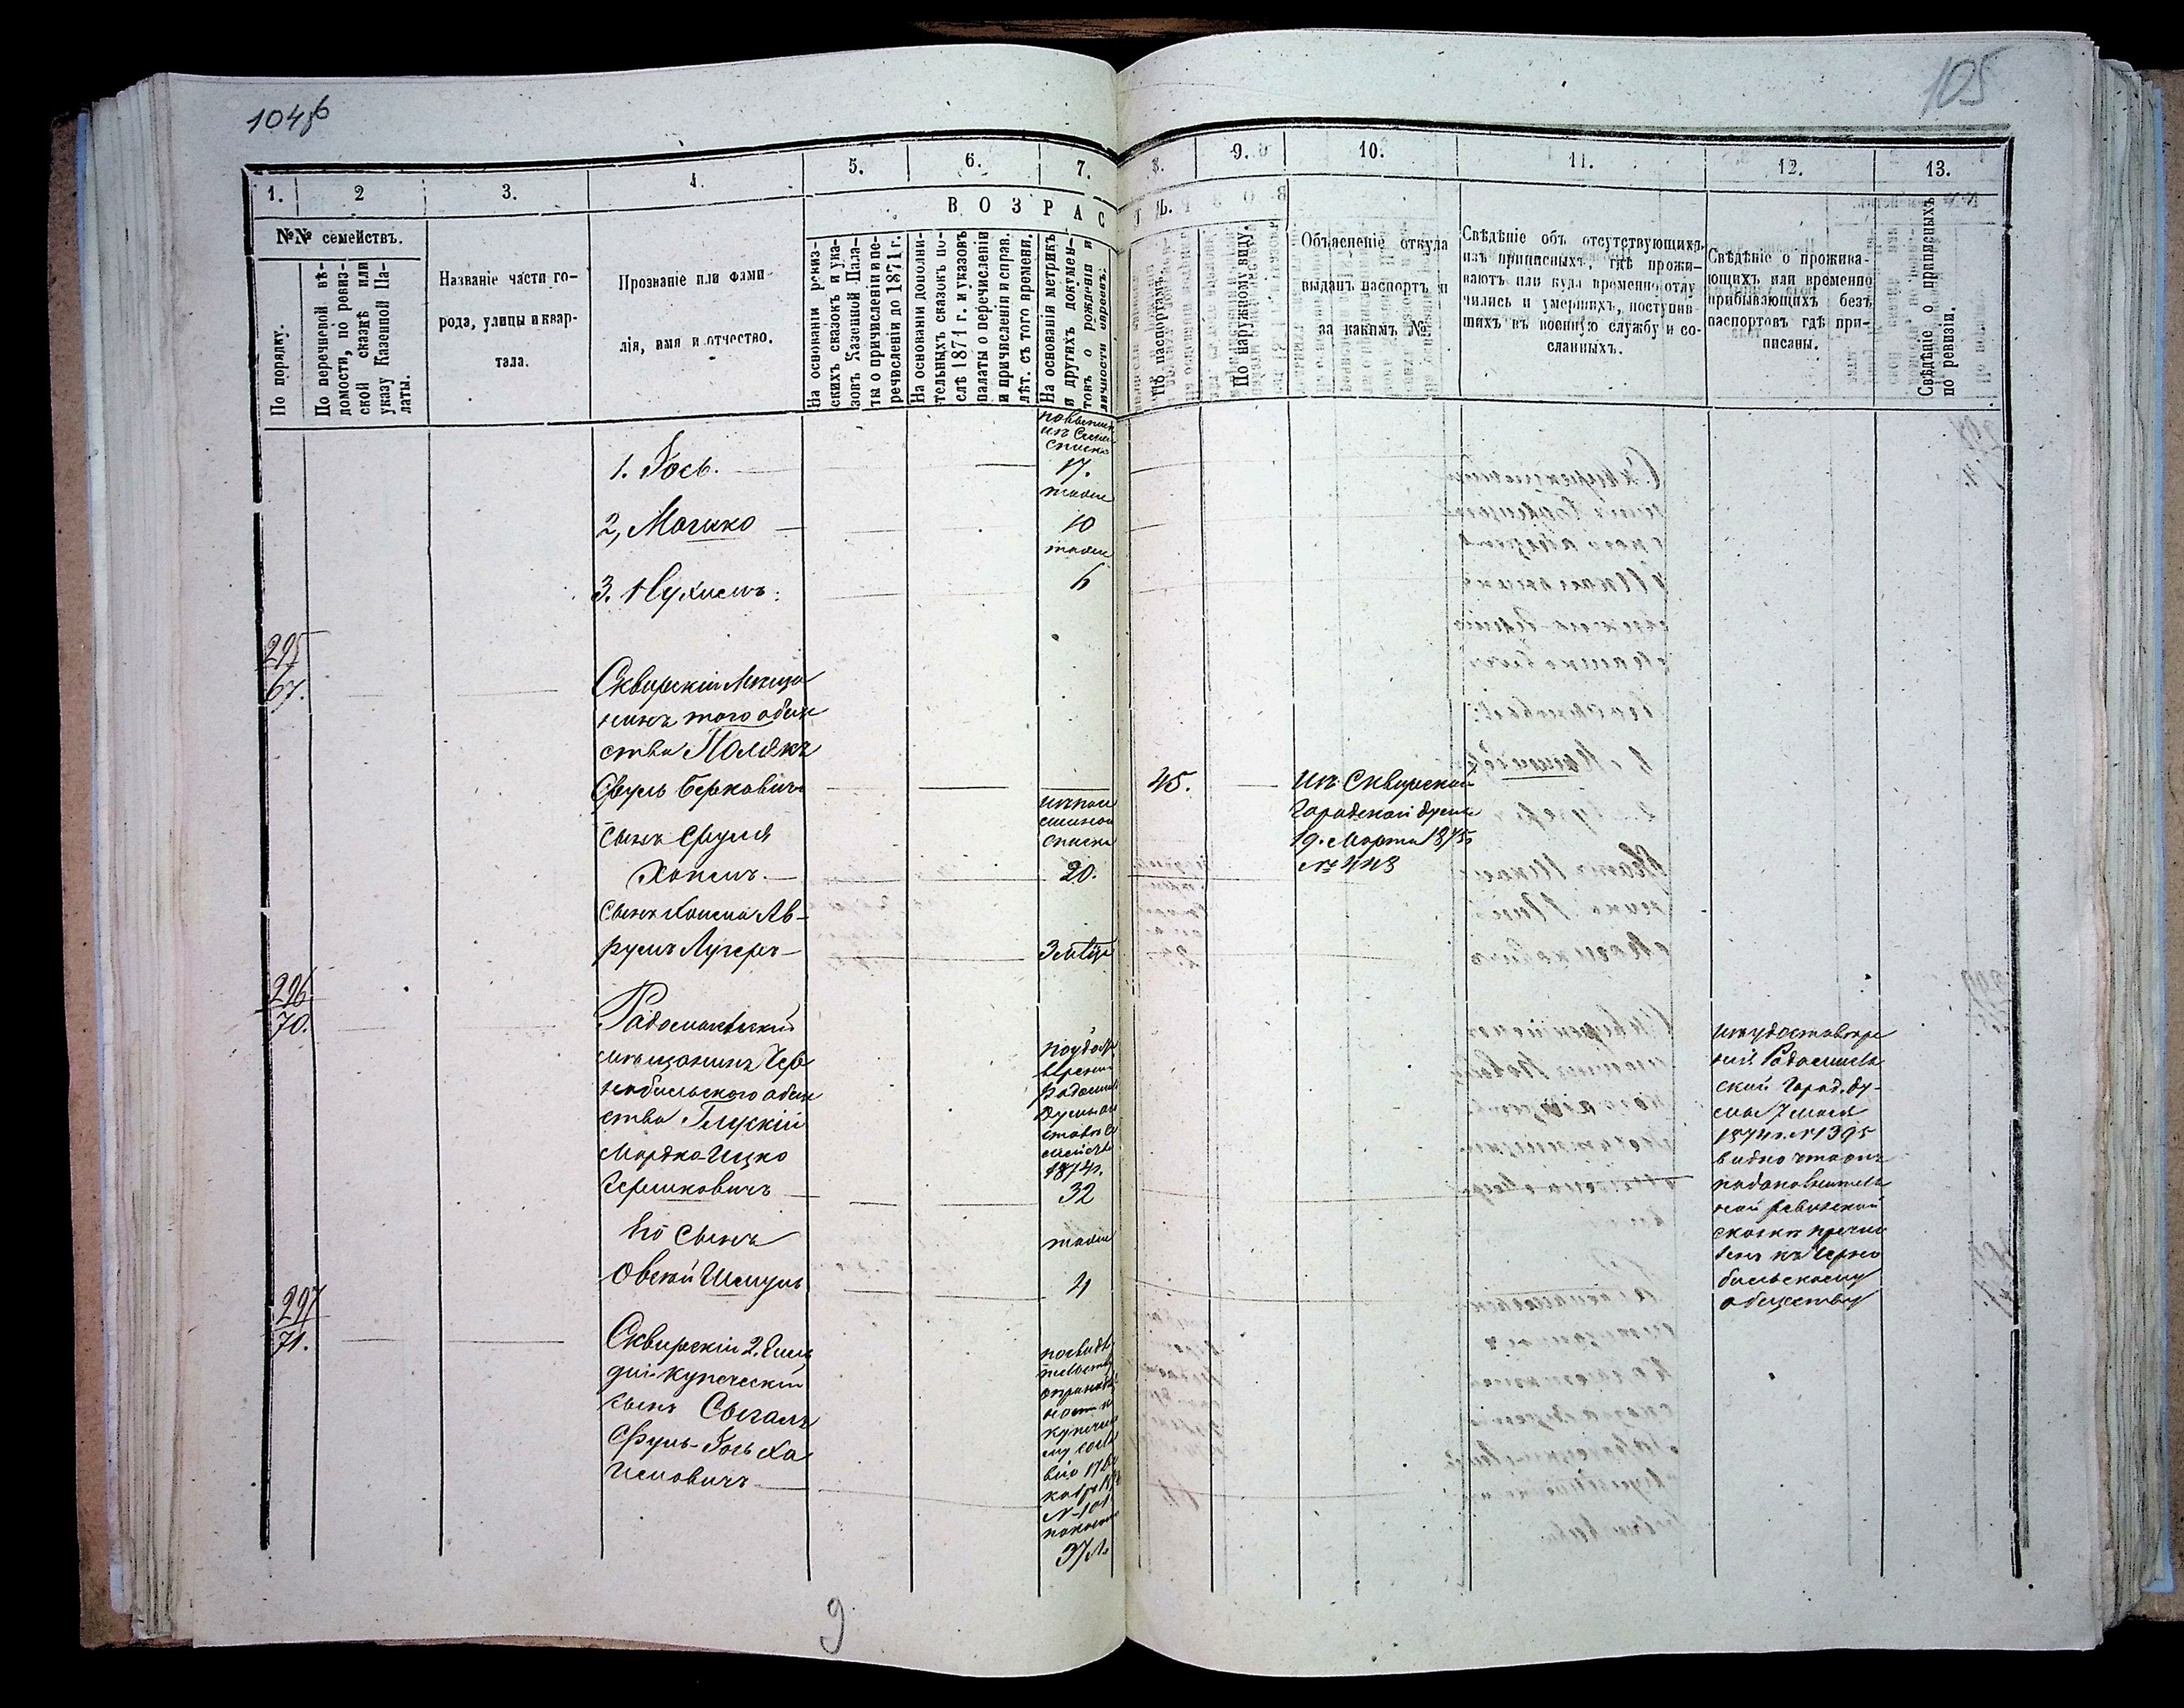 104б
105
1.
2
3.
4.
5.
6.
7.
8.
9.
10.
11.
12.
13.
№№ семействъ.
По порядку.
По перечневой вѣ-
домости, по ревиз-
ской сказкѣ или
указу Казенной Па-
латы.
Названіе части го-
рода, улицы и квар-
тала.
Прозваніе или фами-
лія, имя и отчество.
ВОЗРАС
ТЪ.
На основаніи ревиз-
скихъ сказокъ и ука-
зовъ Казенной Пала-
ты о причисленіи и пе-
речисленіи до 1871 г.
На основаніи дополни-
тельныхъ сказокъ по-
слѣ 1871 г. и указовъ
палаты о перечисленіи
и причисленіи и справ.
лѣт. съ того времени.
На основаніи метрикъ
и другихъ докумен-
товъ о рожденіи и
личности евреевъ.
По паспортамъ.
По наружному виду.
Объясненіе откуда
выданъ паспортъ и
за какимъ №.
Свѣдѣніе объ отсутствующихъ
изъ приписныхъ, гдѣ прожи-
ваютъ или куда временно отлу
чились и умершихъ, поступив-
шихъ въ военную службу и со-
сланныхъ.
Свѣдѣніе о прожива-
ющихъ или временно
прибывающихъ безъ
паспортовъ гдѣ при-
писаны.
Свѣдѣніе о приписныхъ
по ревизіи.
списка
1. Іось.
17.
тоже
2, Мошко
10
тоже
3. Нухимъ.
6
295
67.
Сквирскій Мѣща
нинъ того обще
ства Полякъ
Сруль Берковичъ
45.
Изъ Сквирской
Городской Думы
19. Марта 1875
№ 448
сынъ Сруля
списка
Хаимъ.
20.
сынъ Хаима Ав-
румъ Лузеръ
3 мѣсяца
296
70.
Радомысльскій
мѣщанинъ Чер
нобыльского обще
ства Глускій
Мордко-Ицко
Гершковичъ
по удосто
вѣренію
Радомысл
Думы
1874г.
32
его сынъ
тоже
Овсей Шмуль
4
изъ удостовѣре
нія Радомысль
ской Город. Ду-
мы 7 мая
1874 г. № 1395
видно что онъ
по дополнитель
ной ревизской
сказкѣ причис
ленъ къ Черно
быльскому
обществу
297
71.
Сквирскій 2. Гиль
діи купеческій
сынъ Сыгалъ
Сруль-Іось Ха
имовичъ
по свидѣ
тельству
37 л.
9